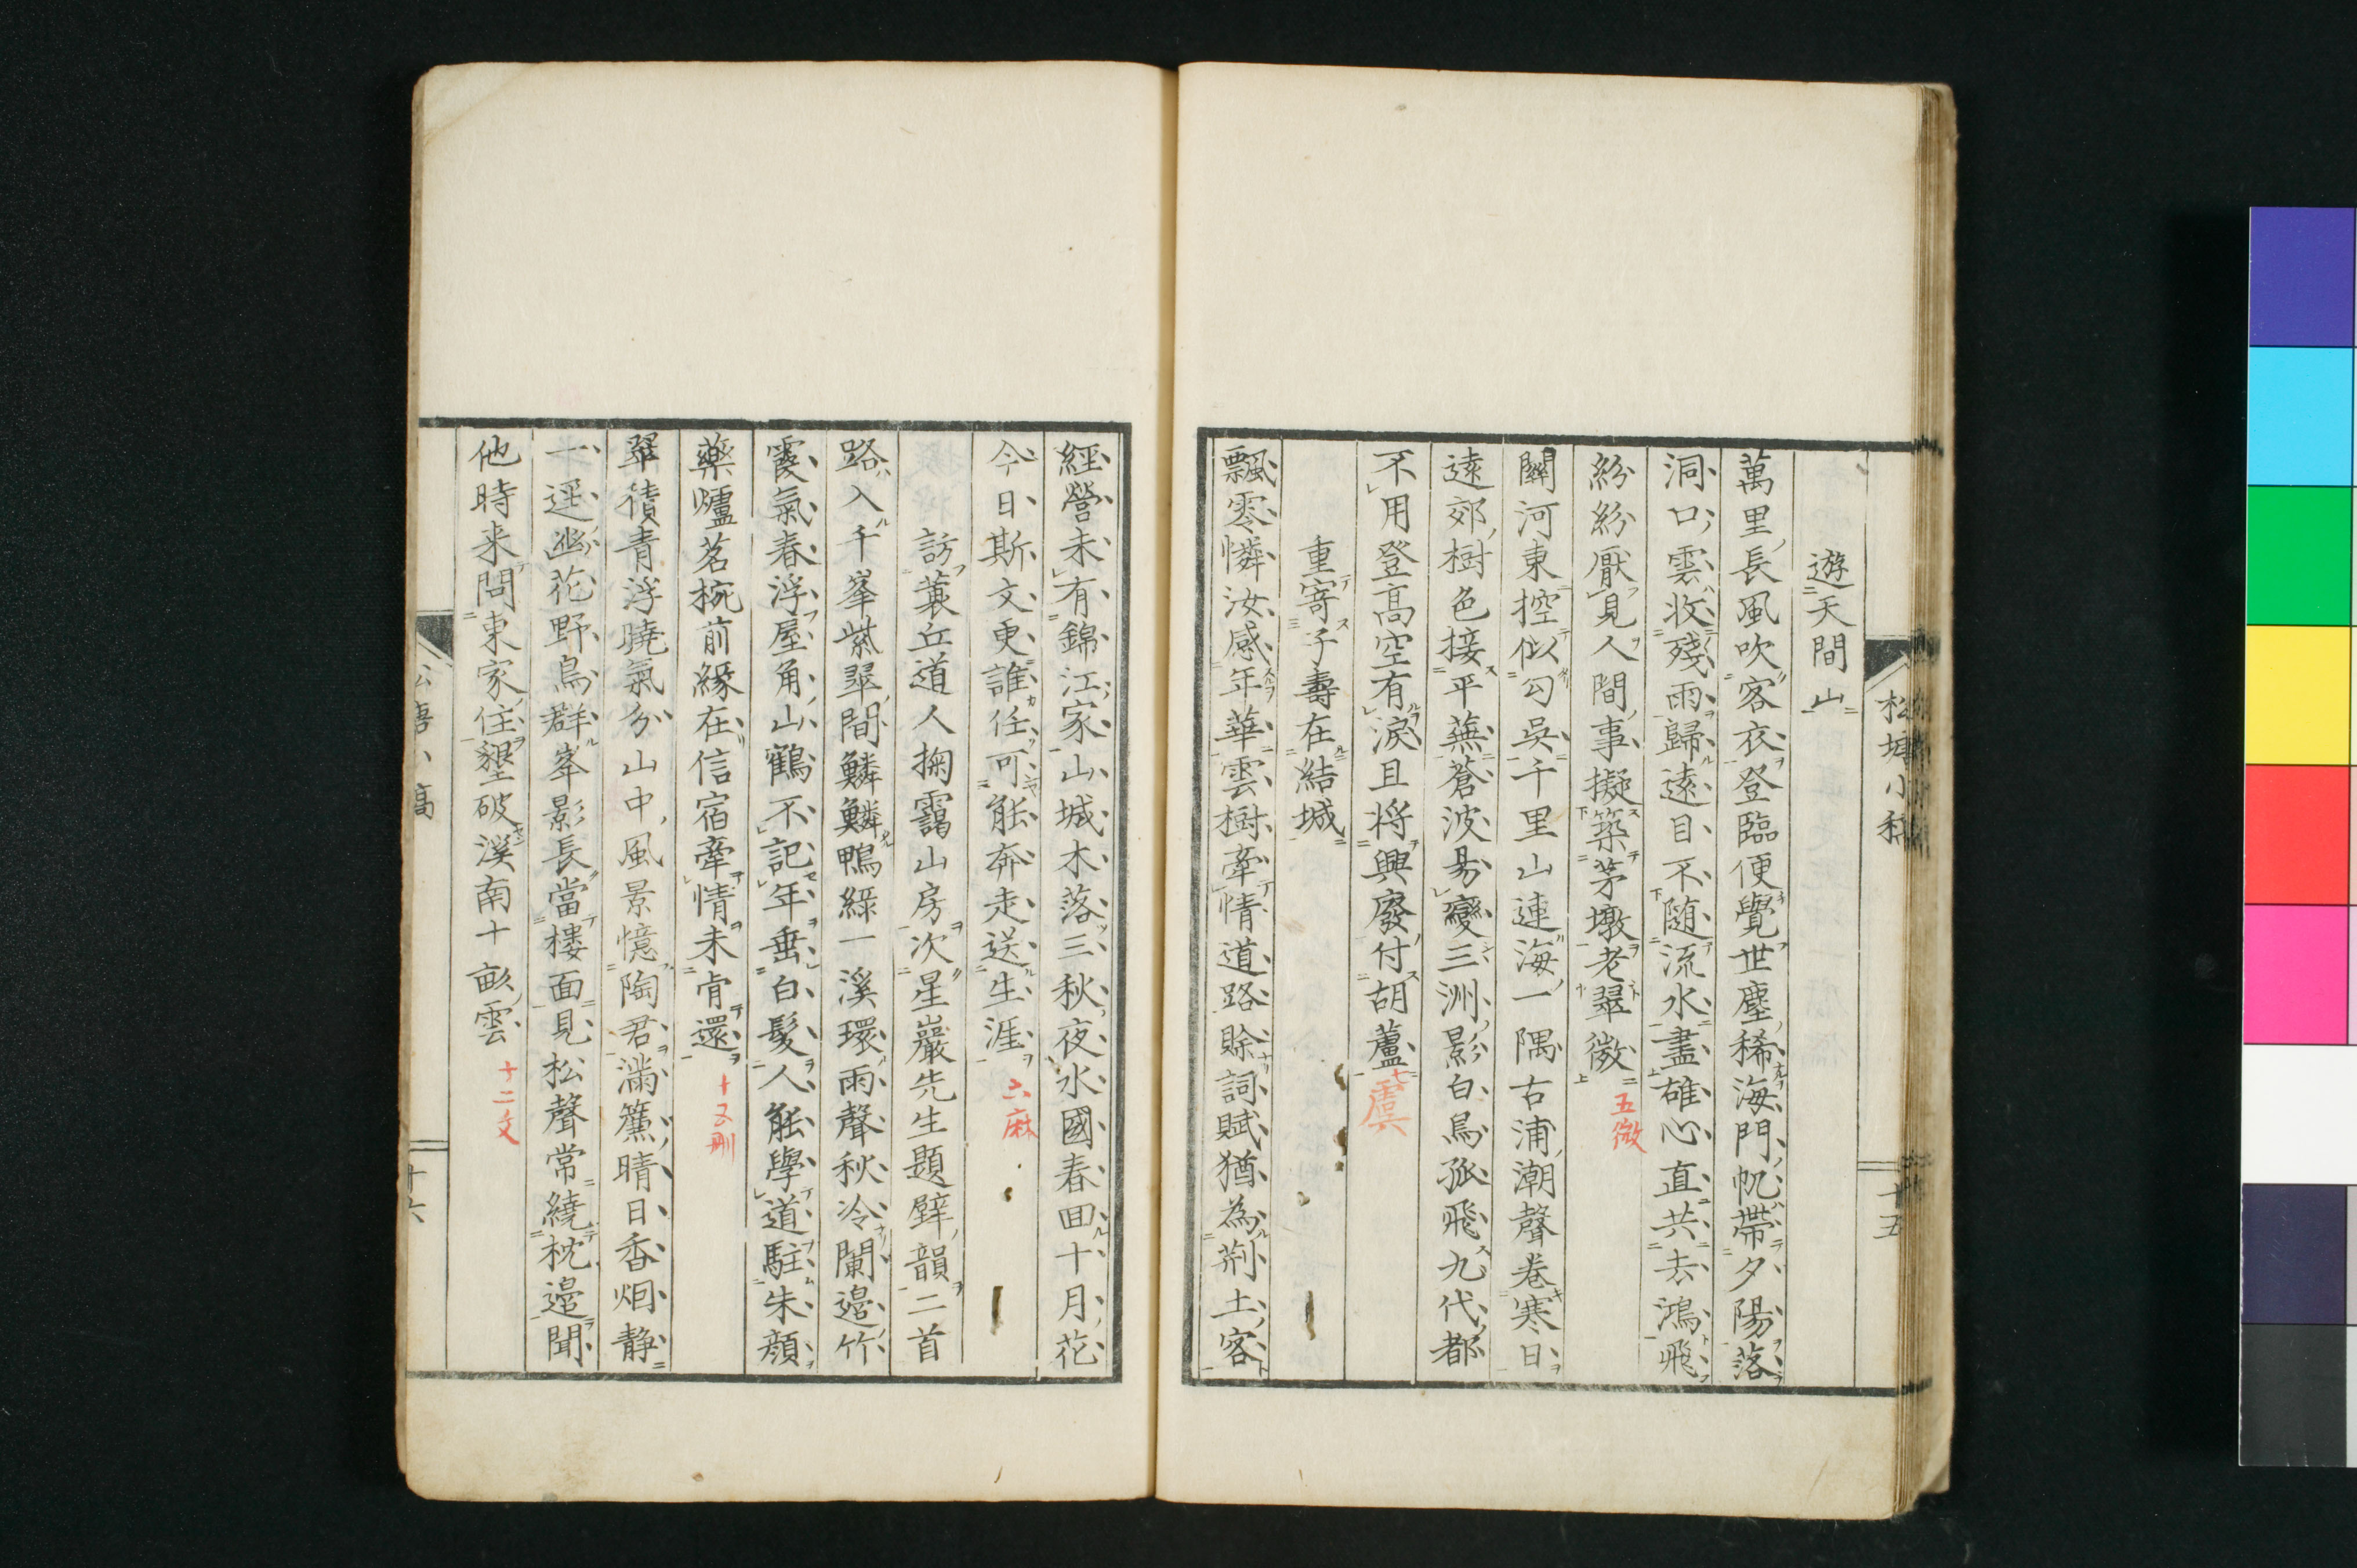 松塘小稿
十五
遊天間山
萬里長風吹客衣登臨便覺世塵稀海門帆帶夕陽落
洞口雲收殘雨歸遠目不随流水盡雄心直共去鴻飛
紛紛厭見人間事擬築茅墩老翠微 五微
關河東控似勾吳千里山連海一隅古浦潮聲卷寒日
遠郊樹色接平蕪蒼波易變三洲影白鳥孤飛九代都
不用登高空有淚且将興廢付胡蘆 七虞
重寄子壽在結城
飄零憐汝感年華雲樹牽情道路賒詞賦猶為荊土客
經營未有錦江家山城木落三秋夜水國春回十月花
今日斯文更誰任可能奔走送生涯 六麻
訪蓑丘道人掬靄山房次星巖先生題壁韻二首
路入千峯紫翠間鱗鱗鴨綠一溪環雨聲秋冷闌邊竹
霞氣春浮屋角山鶴不記年垂白髮人能學道駐朱顔
藥爐茗椀前緣在信宿牽情未肯還 十五刪
翠積青浮曉氣分山中風景憶陶君滿簾晴日香烟静
一逕幽花野鳥群峯影長當樓面見松聲常繞枕邊聞
他時来問東家住墾破溪南十畝雲 十二文
十六